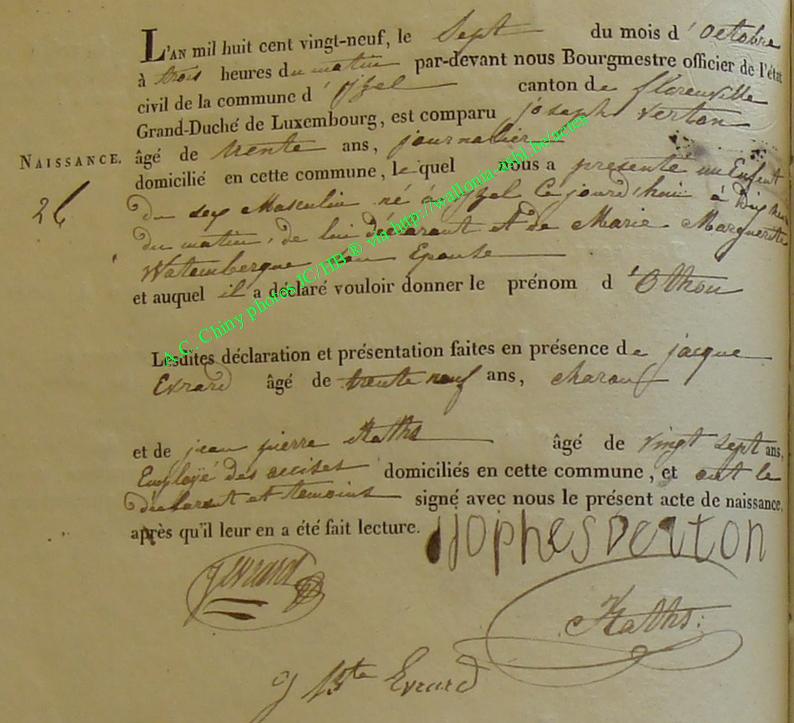 L'AN mil huit cent vingt-neuf, le Sept du mois d'octobre
à trois heures du matin par-devant nous Bourgmestre officier de l'état
civil de la commune d'yzel canton de florenville
Grand-Duché de Luxembourg, est comparu joseph Verton
NAISSANCE. âgé de trente ans, journalier
domicilié en cette commune, lequel nous a présenté un Enfant
26 du sex Masculin né à yzel Cejourd'hui à
du matin, de lui déclarant et de Marie Marguerite
Watembergue Son Epouse
et auquel il a déclaré vouloir donner le prénom d'Othon
A.C. Chiny photos JC/HB ® via http://wallonia-mhl.be/actes
Lesdites déclaration et présentation faites en présence de jacque
Evrard âgé de trente neuf ans, charon
et de jean pierre Kaths âgé de vingt sept ans,
Employé des accises domiciliés en cette commune, et ont le
déclarant et temoins signé avec nous le présent acte de naissance,
après qu'il leur en a été fait lecture.
jjophesverton
jevrard
Kaths.
j Bte Evrard